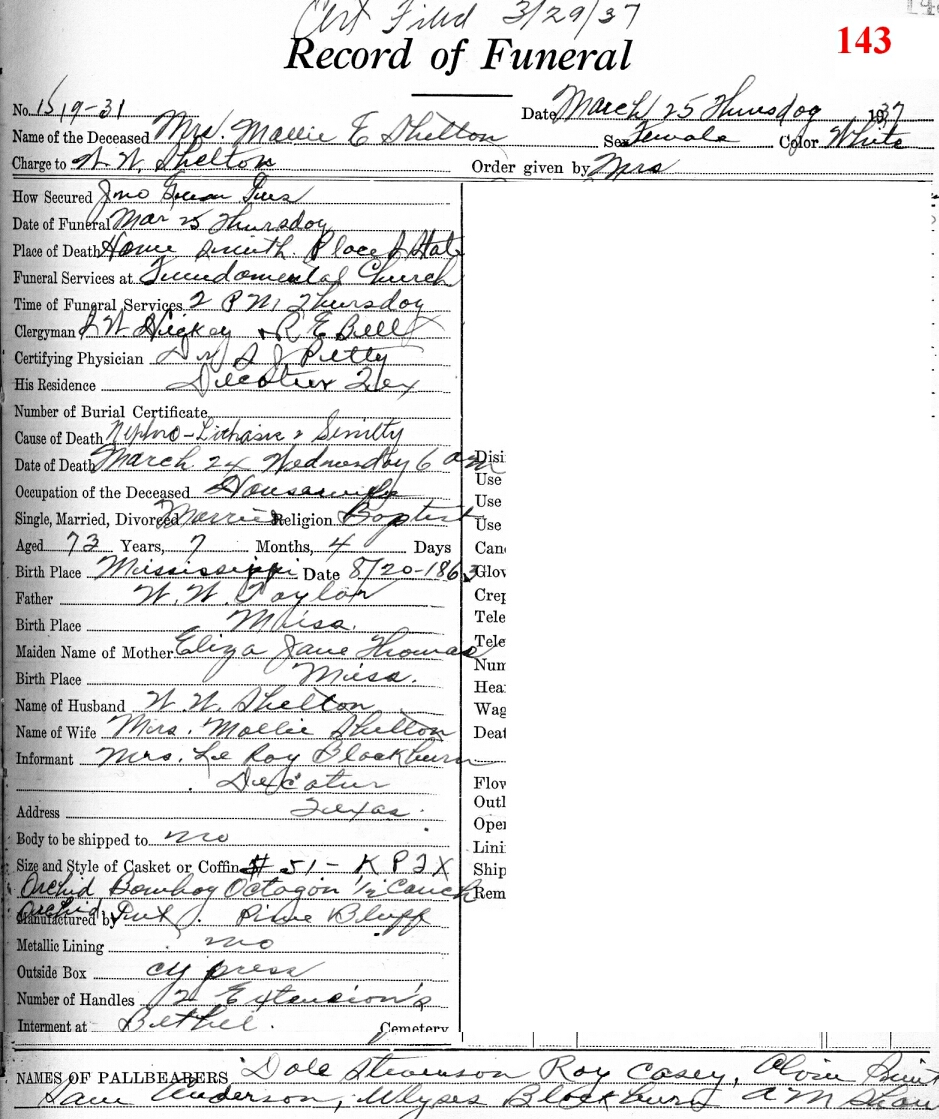 Cert Filed 3/29/37
143
Record of Funeral
No. 1519-31 Date March 25 Thursday 1937
Name of the Deceased Mrs. Mollie E Shelton Sex Female Color White
Charge to W. W. Shelton Order given by Mrs
How Secured Jno
Date of Funeral Mar 25 Thursday
Place of Death Home Smith Place
Funeral Services at Fundomental Church
Time of Funeral Services 2 P M Thursday
Clergyman Hickey & R E Bell
Certifying Physician Dr Petty
His Residence Decatur Tex
Number of Burial Certificate
Cause of Death
Date of Death March 24 Wednesday 6 a m
Disi
Use
Occupation of the Deceased Housewife
Use
Single, Married, Divorced Married Religion Baptist
Use
Aged 73 Years, 7 Months, 4 Days
Can
Birth Place Mississippi Date 8/20-1863
Glov
Father W. W. Taylor
Crep
Birth Place Miss.
Tele
Maiden Name of Mother Eliza Jane Thomas
Tele
Num
Birth Place Miss.
Hea
Name of Husband W. W. Shelton
Wag
Name of Wife Mrs. Mollie Shelton
Deat
Informant Mrs. Le Roy Blackburn
Decatur
Flow
Address Texas.
Outl
Oper
Body to be shipped to no
Lini
Size and Style of Casket or Coffin # 51 - K P 2 X
Ship
Orchid Octagon 1/2 Couch
Rem
Orchid Int
Manufactured by Pine Bluff
Metallic Lining no
Outside Box cypress
Number of Handles 2 Extension's
Interment at Bethel. Cemetery
NAMES OF PALLBEARERS Dale Stevenson Roy Casey, Alvin
Sam Anderson, Ulyses Blackburn A M